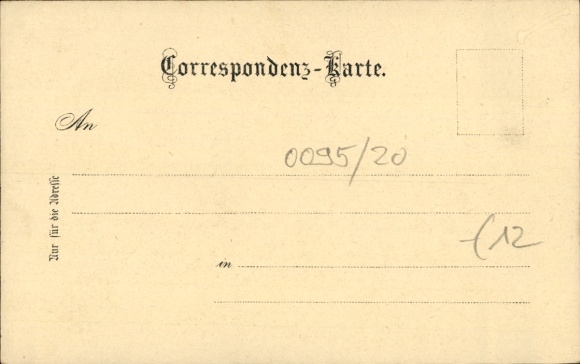 Correspondenz-Karte.
An
0095/20
Nur für die Adresse
(12
in